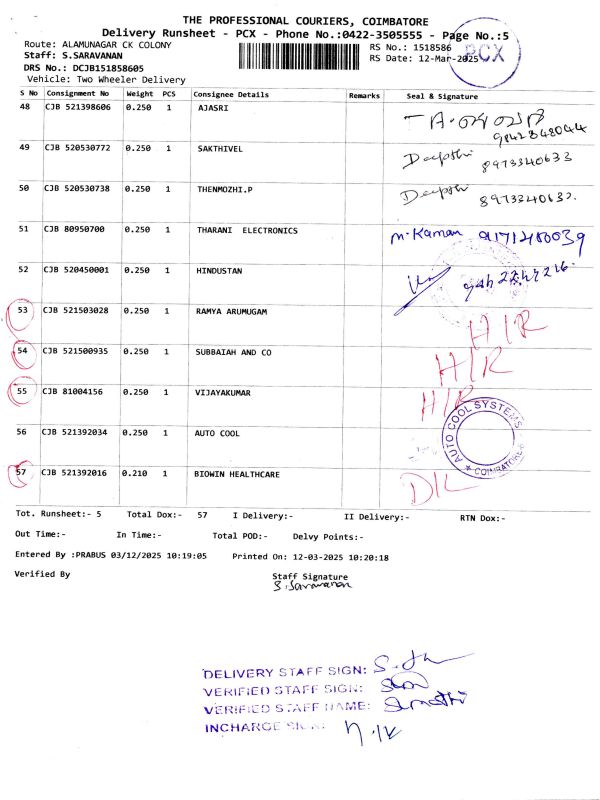 THE PROFESSIONAL COURIERS, COIMBATORE
Delivery Runsheet - PCX - Phone No.:0422-3505555 - Page No.:5
Route: ALAMUNAGAR CK COLONY RS No.: 1518586
Staff: S.SARAVANAN RS Date: 12-Mar-2025
PCX
DRS No.: DCJB151858605
Vehicle: Two Wheeler Delivery
S No Consignment No Weight PCS Consignee Details Remarks Seal & Signature
48 CJB 521398606 0.250 1 AJASRI
9842348044
49 CJB 520530772 0.250 1 SAKTHIVEL Deepthi 8973340633
50 CJB 520530738 0.250 1 THENMOZHI.P Deepthi 8973340633.
51 CJB 80950700 0.250 1 THARANI ELECTRONICS M.Kaman 9171480039
52 CJB 520450001 0.250 1 HINDUSTAN
53 CJB 521503028 0.250 1 RAMYA ARUMUGAM H/R
54 CJB 521500935 0.250 1 SUBBAIAH AND CO H/R
55 CJB 81004156 0.250 1 VIJAYAKUMAR H/R
56 CJB 521392034 0.250 1 AUTO COOL AUTO COOL SYSTEMS COIMBATORE-6
57 CJB 521392016 0.210 1 BIOWIN HEALTHCARE D/L
Tot. Runsheet:- 5 Total Dox:- 57 I Delivery:- II Delivery:- RTN Dox:-
Out Time:- In Time:- Total POD:- Delvy Points:-
Entered By :PRABUS 03/12/2025 10:19:05 Printed On: 12-03-2025 10:20:18
Verified By Staff Signature
S.Saravanan
DELIVERY STAFF SIGN:
VERIFIED STAFF SIGN:
VERIFIED STAFF NAME:
INCHARGE SIGN: